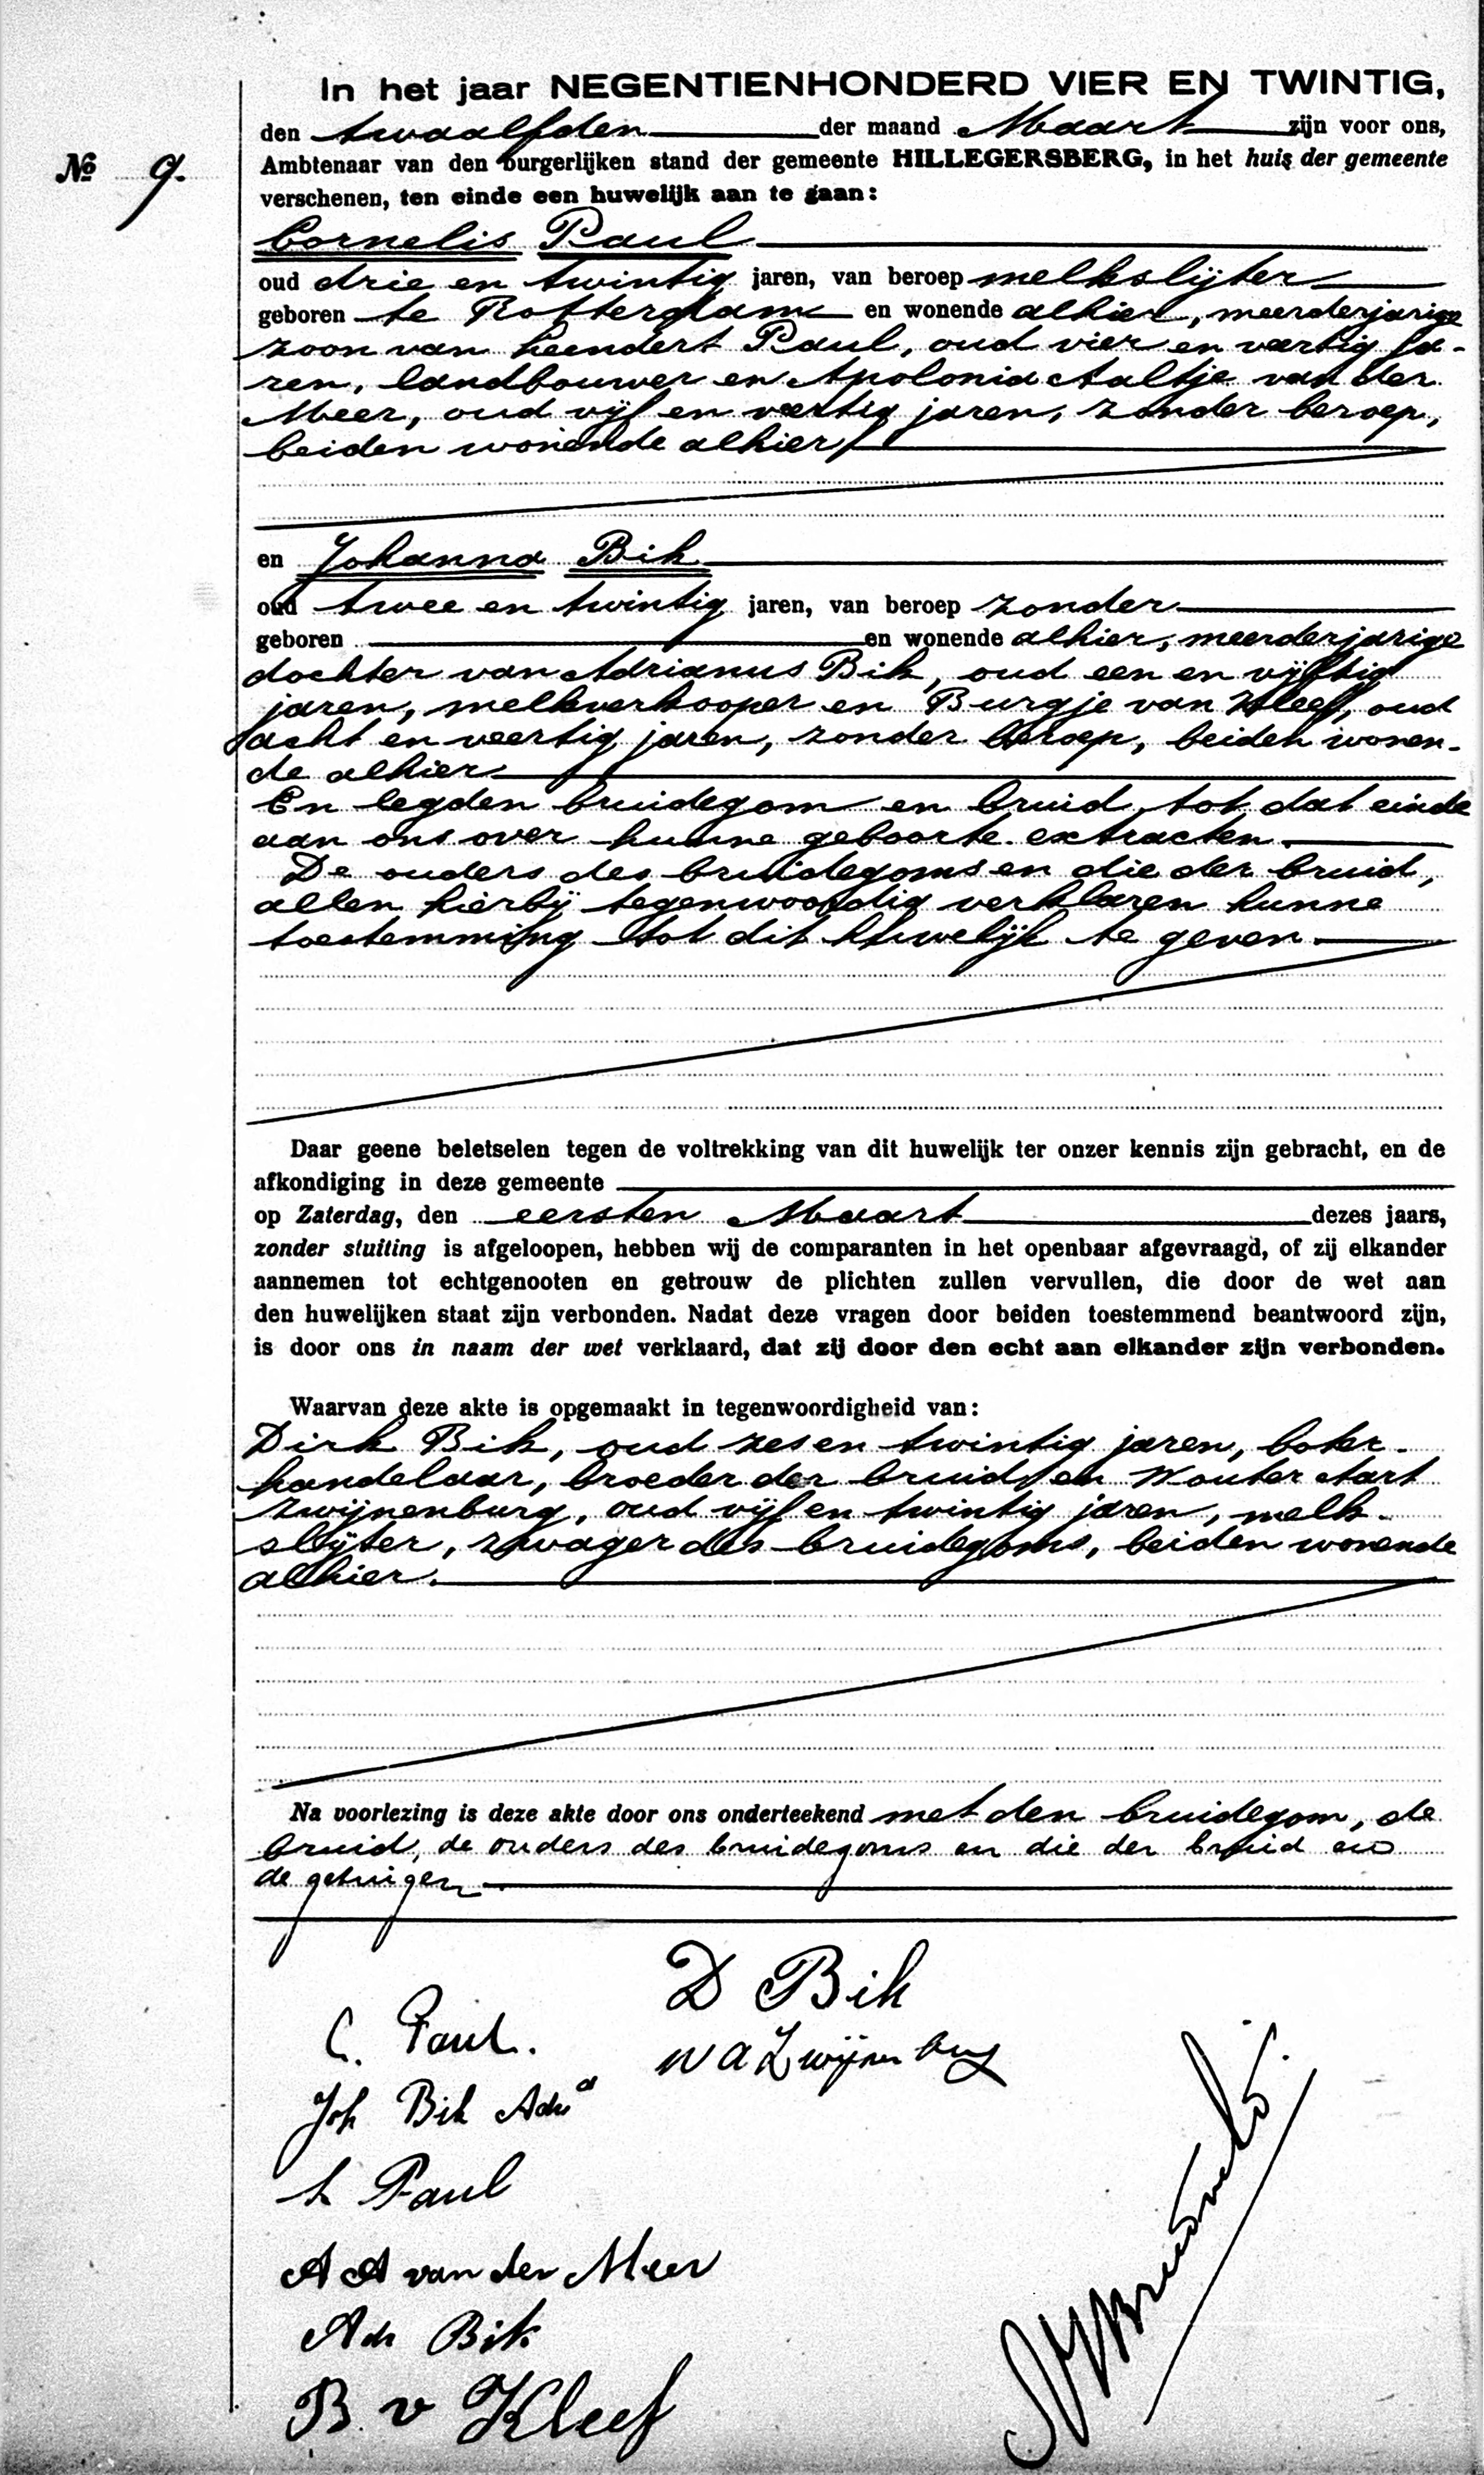 In het jaar NEGENTIENHONDERD VIER EN TWINTIG,
den twaalfden der maand Maart zijn voor ons,
No 9.
Ambtenaar van den burgerlijken stand der gemeente HILLEGERSBERG, in het huis der gemeente
verschenen, ten einde een huwelijk aan te gaan:
Cornelis Paul
oud drie en twintig jaren, van beroep melkslijter
geboren te Rotterdam en wonende alhier, meerderjarige
zoon van Leendert Paul, oud vier en veertig ja-
ren, landbouwer en Apolonia Aaltje van der
Meer, oud vijf en veertig jaren, zonder beroep,
beiden wonende alhier
en Johanna Bik
oud twee en twintig jaren, van beroep zonder
geboren en wonende alhier, meerderjarige
dochter van Adrianus Bik, oud een en vijftig
jaren, melkverkooper en Burgje van Kleef, oud
acht en veertig jaren, zonder beroep, beiden wonen-
de alhier.
En legden bruidegom en bruid tot dat einde
aan ons over hunne geboorte extracten.
De ouders des bruidegoms en die der bruid,
allen hierbij tegenwoordig verklaren hunne
toestemming tot dit huwelijk te geven.
Daar geene beletselen tegen de voltrekking van dit huwelijk ter onzer kennis zijn gebracht, en de
afkondiging in deze gemeente
op Zaterdag, den eersten Maart dezes jaars,
zonder stuiting is afgeloopen, hebben wij de comparanten in het openbaar afgevraagd, of zij elkander
aannemen tot echtgenooten en getrouw de plichten zullen vervullen, die door de wet aan
den huwelijken staat zijn verbonden. Nadat deze vragen door beiden toestemmend beantwoord zijn,
is door ons in naam der wet verklaard, dat zij door den echt aan elkander zijn verbonden.
Waarvan deze akte is opgemaakt in tegenwoordigheid van:
Dirk Bik, oud zes en twintig jaren, boter-
handelaar, broeder der bruid, en Wouter Aart
Zwijnenburg, oud vijf en twintig jaren, melk-
slijter, zwager des bruidegoms, beiden wonende
alhier.
Na voorlezing is deze akte door ons onderteekend met den bruidegom, de
bruid, de ouders des bruidegoms en die der bruid en
de getuigen.
D Bik
C. Paul.
W A Zwijnenburg
Joh Bik Adrd
L Paul
A A van der Meer
Adr Bik
B. v Kleef